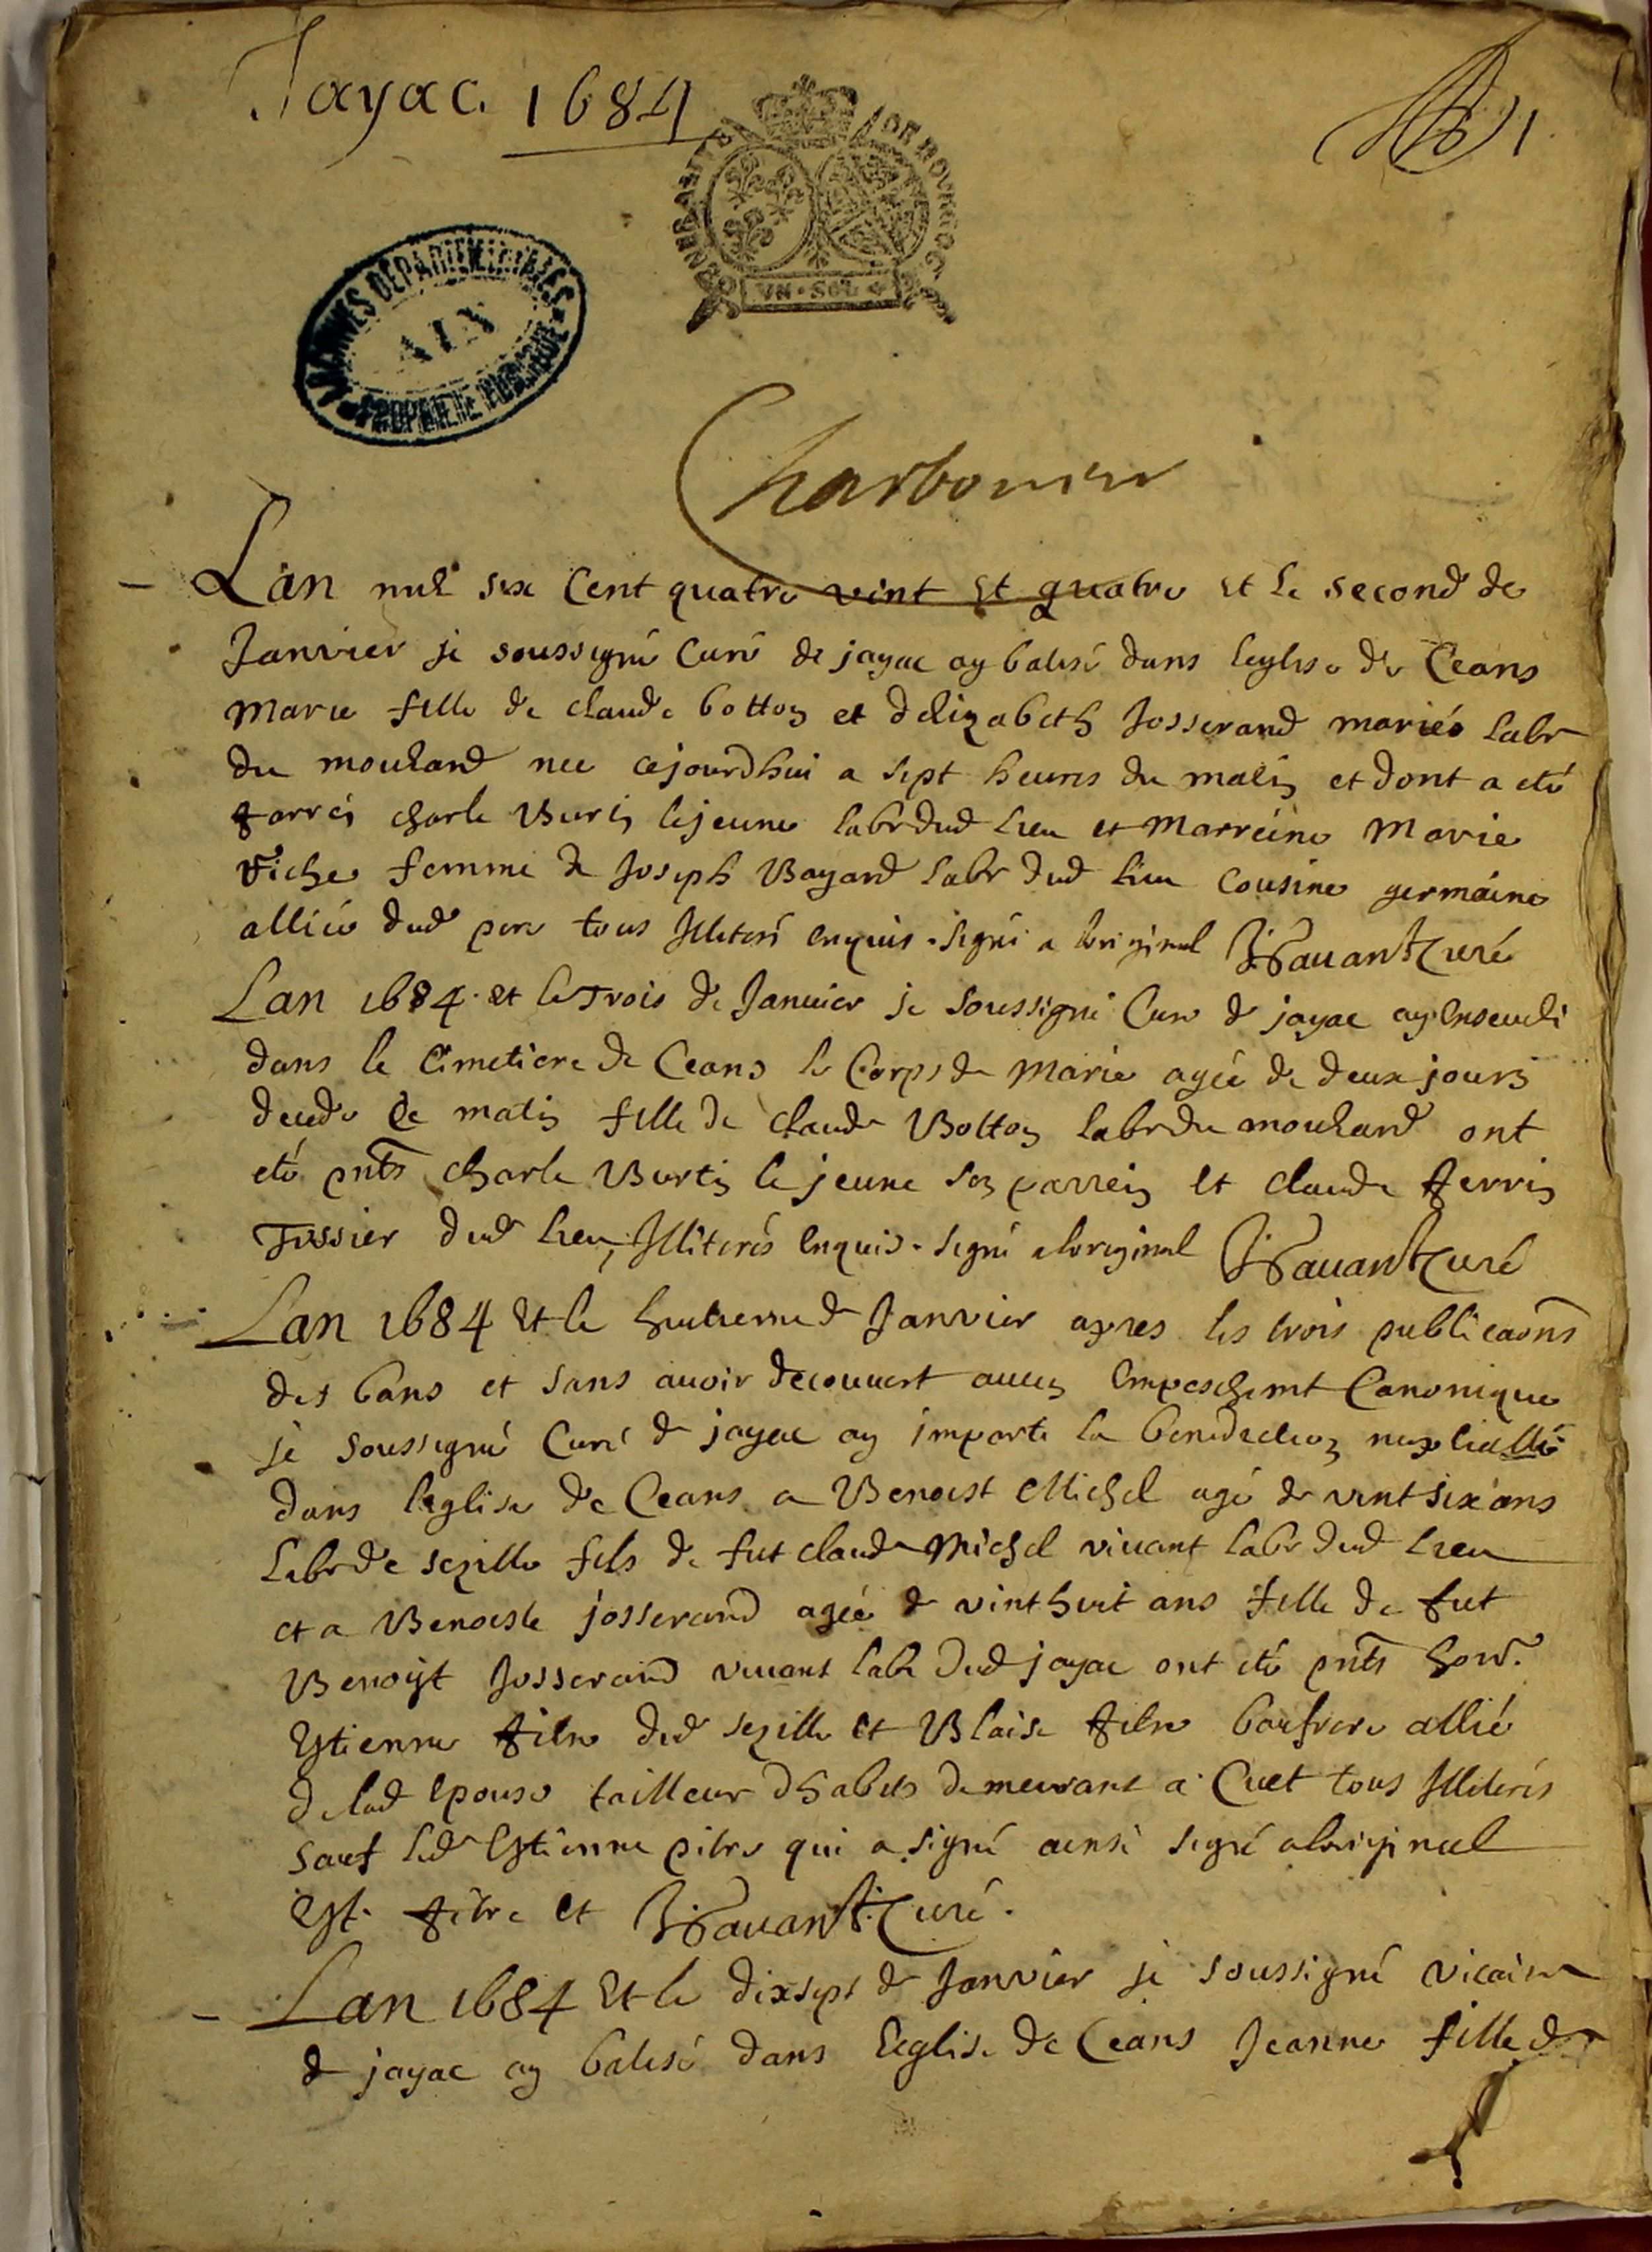 Jayac. 1684
1
GENERALITE DE BOURGOG
VN · SOL
ARCHIVES DEPARTEMENTALES
AIN
PROPRIETE PUBLIQUE
Charbonier
Lan mil six Cent quatre vint et quatre et le second de
Janvier je soussigné Curé de jayac ay batisé dans leglise de Ceans
Marie fille de claude botton et delizabeth Josserand mariés labr
du moulard nee cejourdhui a sept heures du matin et dont a eté
parrein charle Burtin lejeune labr dud lieu et Marreine Marie
femme de Joseph Bayard labr dud lieu Cousine germaine
alliée dud pere tous Illiterés enquis. signé a loriginal Curé
Lan 1684. et le Trois de Janvier je soussigné Curé de jayac ay Enseveli
dans le Cimetiere de Ceans le Corps de Marie agée de deux jours
decede Ce matin fille de claude Botton labr du moulard ont
eté pnts charle Burtin le jeune son parrein et claude Perrin
Tissier dud lieu, Illiterés enquis. signé aloriginal Curé
Lan 1684 Et le huitieme de Janvier apres les trois publicaons
des bans et sans avoir decouvert aucun Empeschemt Canonique
je soussigné Curé de jayac ay imparti la benediction nuptialle
dans leglise de Ceans a Benoist Michel agé de vint six ans
labr de sezille fils de fut claude Michel vivant labr dud lieu
et a Benoiste josserand agée de vint huit ans fille de fut
Benoist Josserand vivant labr dud jayac ont eté pnts hon.
Estienne Pitre dud sezille et Blaise Pitre baufrere allié
de lad Epouse tailleur dhabits demeurant a Cuet tous Illiterés
sauf led Estienne pitre qui a signé ainsi signé aloriginal
Est. Pitre et Curé.
Lan 1684 Et le dixsept de Janvier je soussigné vicaire
de jayac ay batisé dans leglise de Ceans Jeanne fille de